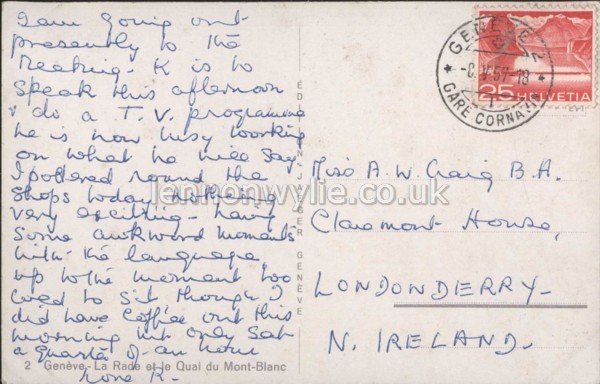 I am going out
presently to the
Meeting. K is to
speak this afternoon
& do a T.V. programme
he is now busy working
on what he will say
I pottered round the
shops today nothing
very exciting - have
some awkward moments
with the language
up to the moment too
cold to sit though I
did have coffee out this
morning but only sat
a quarter of an hour
love K-
2 Genève - La Rade et le Quai du Mont-Blanc
EDITION JAEGER GENÈVE
GENÈVE
GARE CORNAVIN
25 HELVETIA
Miss A. W. Craig B.A.
Claremont House,
LONDONDERRY-
N. IRELAND.
lennonwylie.co.uk